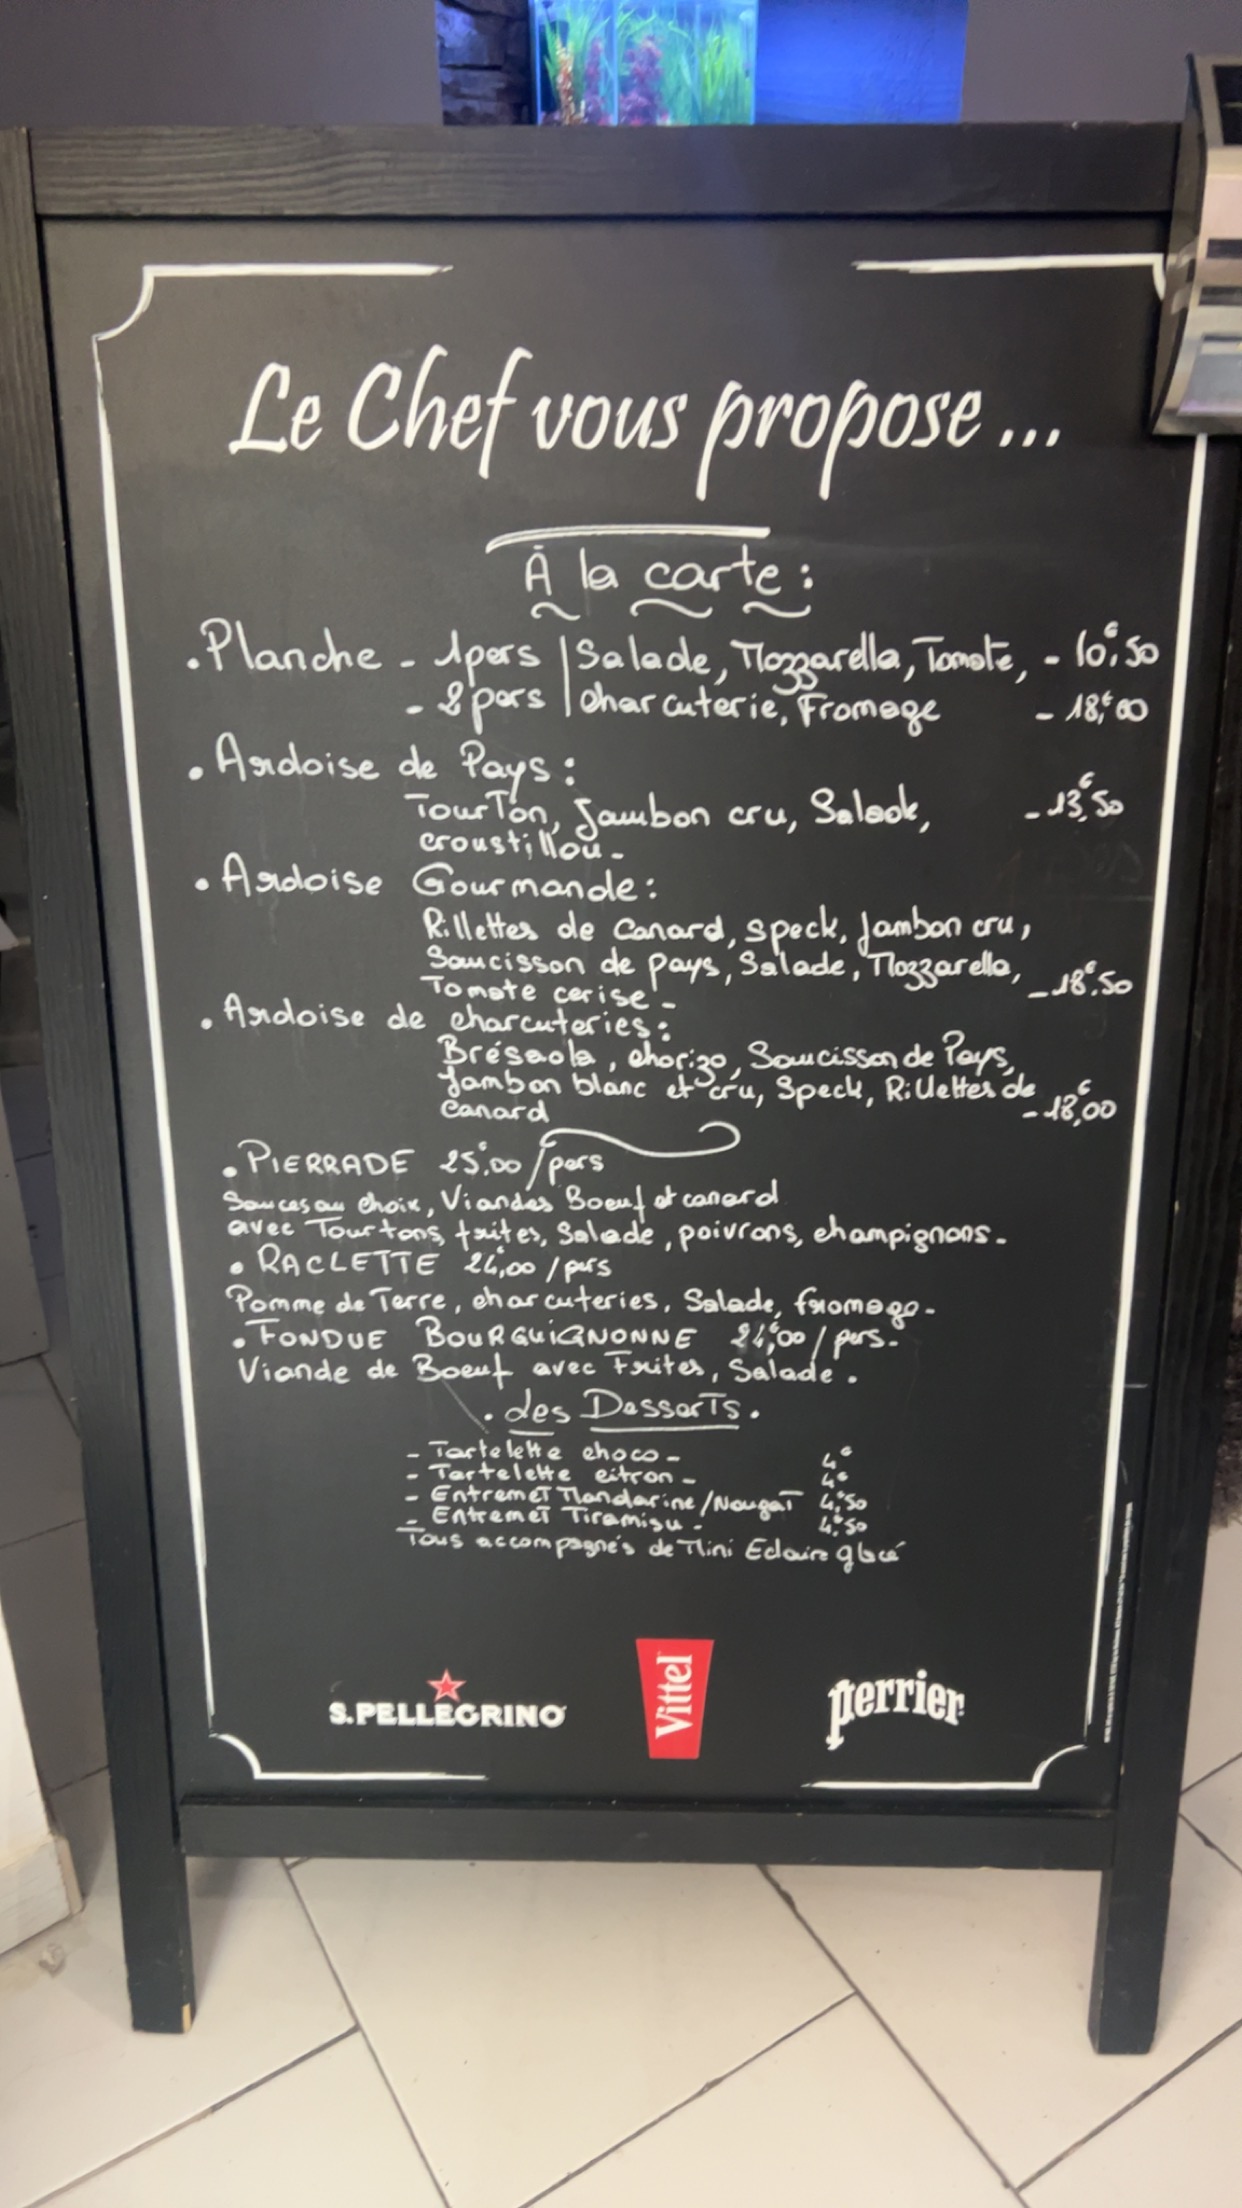 Le Chef vous propose...
À la carte :
. Planche - 1pers | Salade, Mozzarella, Tomate, - 10,€50
- 2 pers | charcuterie, Fromage - 18,€00
. Ardoise de Pays :
Tourton, Jambon cru, Salade, - 13,€50
croustillou -
. Ardoise Gourmande :
Rillettes de canard, speck, Jambon cru,
Saucisson de pays, Salade, Mozzarella, - 18,€50
Tomate cerise -
. Ardoise de charcuteries :
Brésaola, chorizo, Saucisson de Pays,
Jambon blanc et cru, Speck, Rillettes de
canard - 18,€00
. PIERRADE 25,€00 / pers
Sauces au choix, Viandes Boeuf et canard
avec Tourtons, frites, Salade, poivrons, champignons -
. RACLETTE 24,€00 / pers
Pomme de Terre, charcuteries, Salade, fromage -
. FONDUE BOURGUIGNONNE 24,€00 / pers -
Viande de Boeuf avec Frites, Salade .
. des Desserts .
- Tartelette choco - 4€
- Tartelette citron - 4€
- Entremet Mandarine/Nougat 4,€50
- Entremet Tiramisu - 4,€50
Tous accompagnés de Mini Eclaire glacé
S.PELLEGRINO Vittel perrier